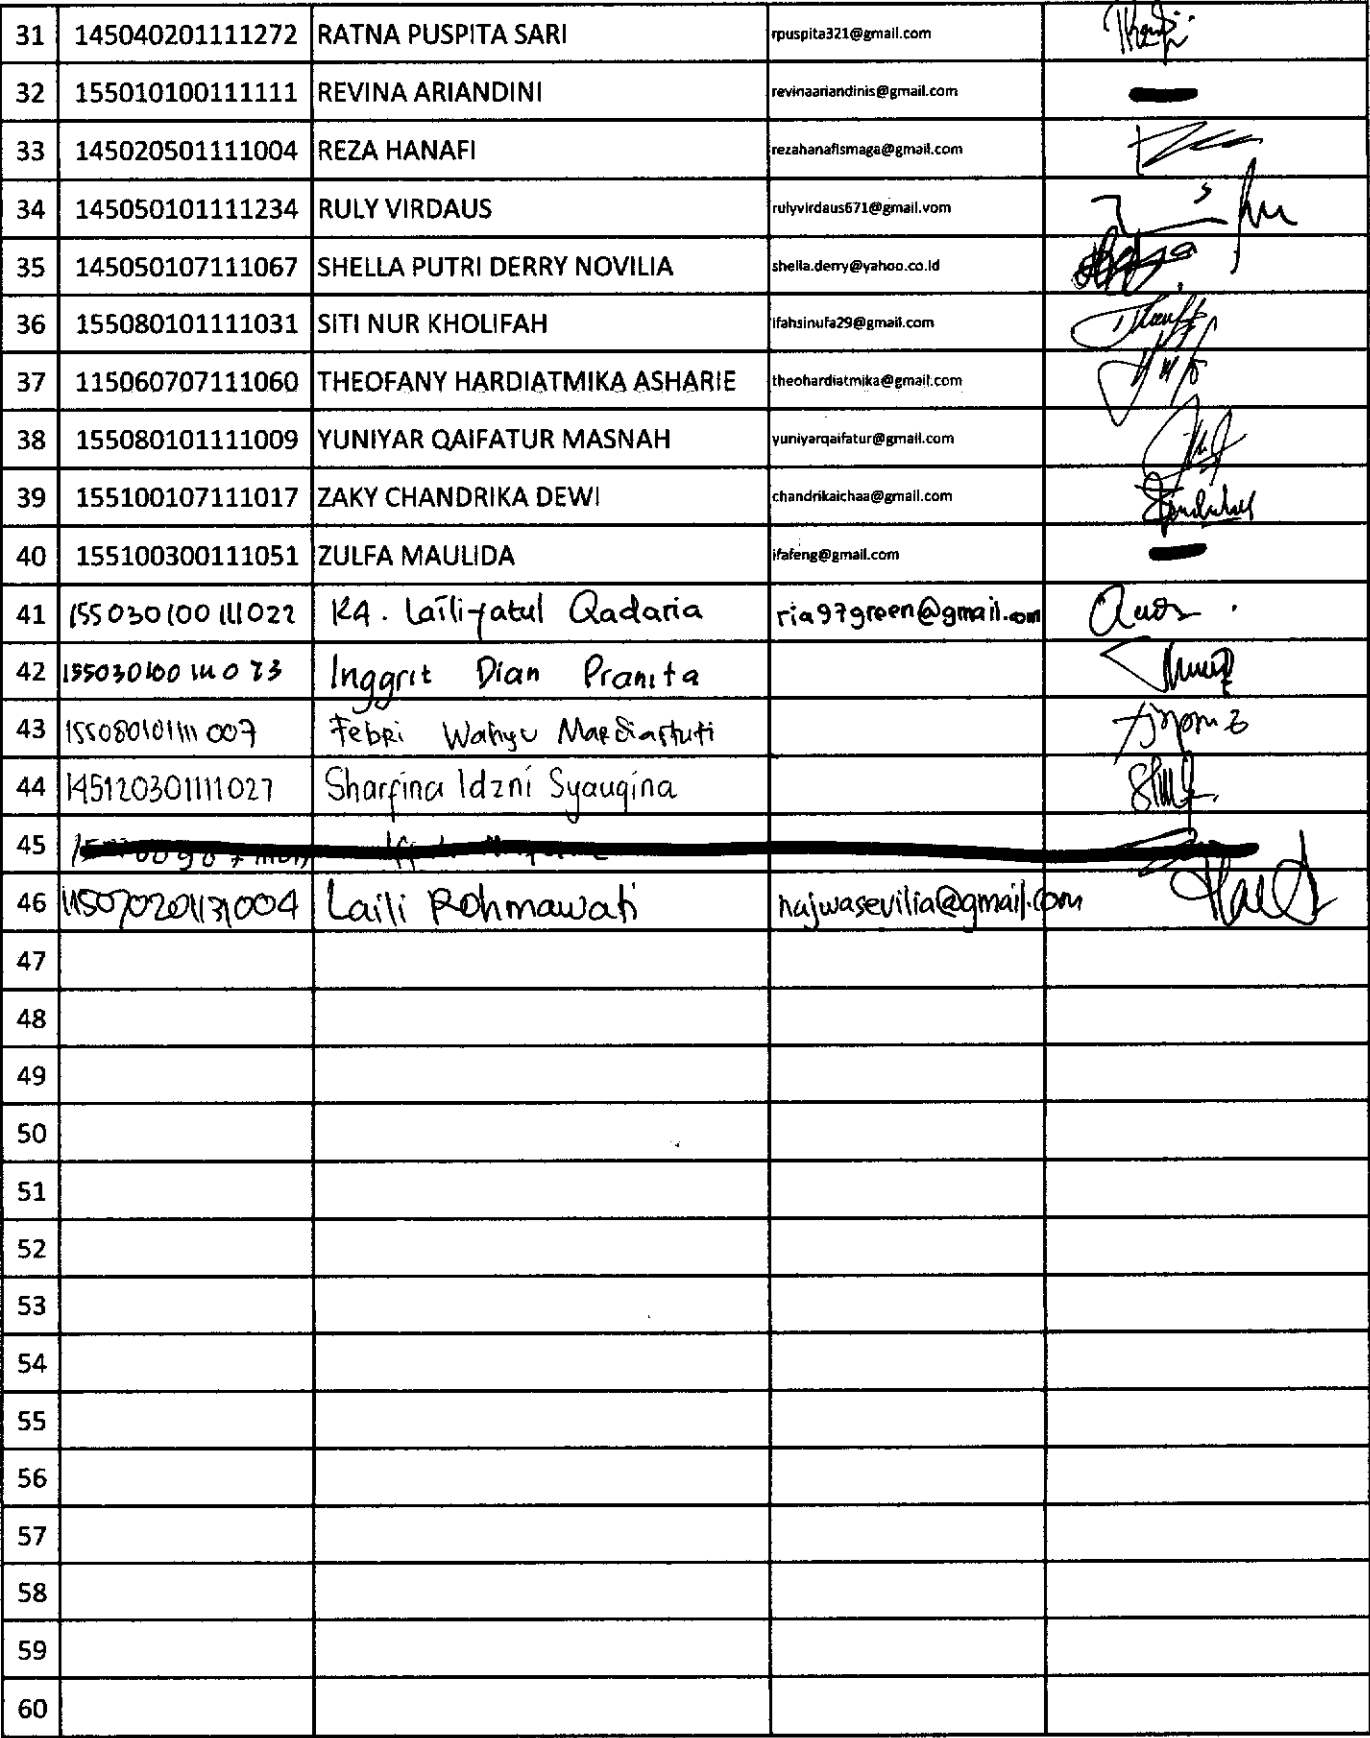 31 145040201111272 RATNA PUSPITA SARI rpuspita321@gmail.com
32 155010100111111 REVINA ARIANDINI revinaariandinis@gmail.com
33 145020501111004 REZA HANAFI rezahanafismaga@gmail.com
34 145050101111234 RULY VIRDAUS rulyvirdaus671@gmail.vom
35 145050107111067 SHELLA PUTRI DERRY NOVILIA shella.derry@yahoo.co.id
36 155080101111031 SITI NUR KHOLIFAH ifahsinufa29@gmail.com
37 115060707111060 THEOFANY HARDIATMIKA ASHARIE theohardiatmika@gmail.com
38 155080101111009 YUNIYAR QAIFATUR MASNAH yuniyarqaifatur@gmail.com
39 155100107111017 ZAKY CHANDRIKA DEWI chandrikaichaa@gmail.com
40 155100300111051 ZULFA MAULIDA ifafeng@gmail.com
41 155030100111022 KA. Lailiyatul Qadaria ria97green@gmail.com
42 155030100111073 Inggrit Dian Pranita
43 155080101111007 Febri Wahyu Mardiastuti
44 145120301111027 Sharfina Idzni Syauqina
45
46 115070201131004 Laili Rohmawati najwasevilia@gmail.com
47
48
49
50
51
52
53
54
55
56
57
58
59
60